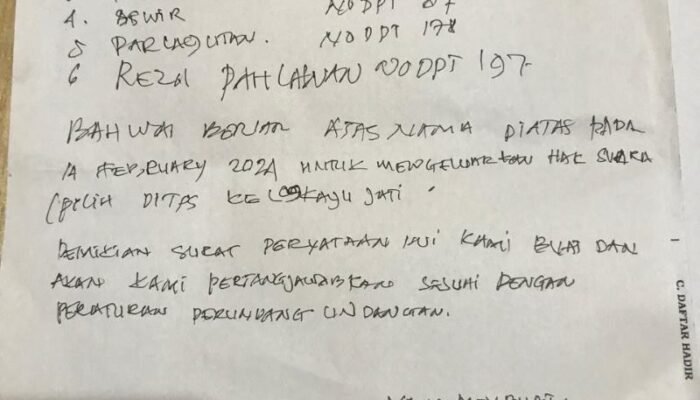 4. ASWIR NODPT 87
5 PARLAGUTAN. NODPT 178
6 REZAL PAHLAWAN NODPT 197
BAHWAI BENAR ATAS NAMA DIATAS PADA
14 FEBRUARY 2024 UNTUK MENGELUARKAN HAK SUARA
PILIH DITPS KEL KAYU JATI
DEMIKIAN SURAT PERYATAAN INI KAMI BUAT DAN
AKAN KAMI PERTANGJAWABKAN SESUAI DENGAN
PERATURAN PERUNDANG UNDANGAN.
C. DAFTAR HADIR